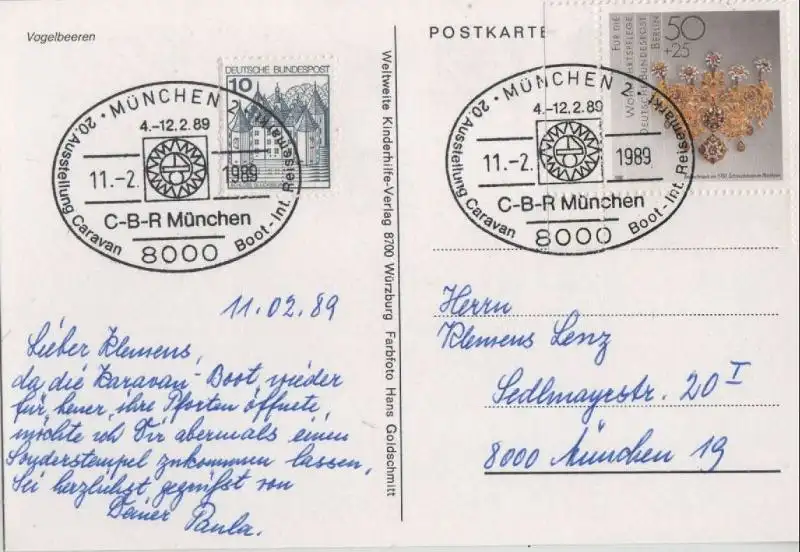 Vogelbeeren
DEUTSCHE BUNDESPOST
10
20. Ausstellung Caravan
MÜNCHEN 2
Boot-Int. Reisemarkt
4.-12.2.89
11.-2. 1989
C-B-R München
8000
11.02.89
Lieber Klemens,
da die Karavan-Boot, wieder
für heuer, ihre Pforten öffnete,
möchte ich Dir abermals einen
Sonderstempel zukommen lassen,
Sei herzlichst gegrüßt von
Deiner Paula.
Weltweite Kinderhilfe-Verlag 8700 Würzburg Farbfoto Hans Goldschmitt
POSTKARTE
FÜR DIE
WOHLFAHRTSPFLEGE
DEUTSCHE BUNDESPOST
BERLIN
50
+25
20. Ausstellung Caravan
MÜNCHEN 2
Boot-Int. Reisemarkt
4.-12.2.89
11.-2. 1989
C-B-R München
8000
Herrn
Klemens Lenz
Sedlmayrstr. 20 I
8000 München 19